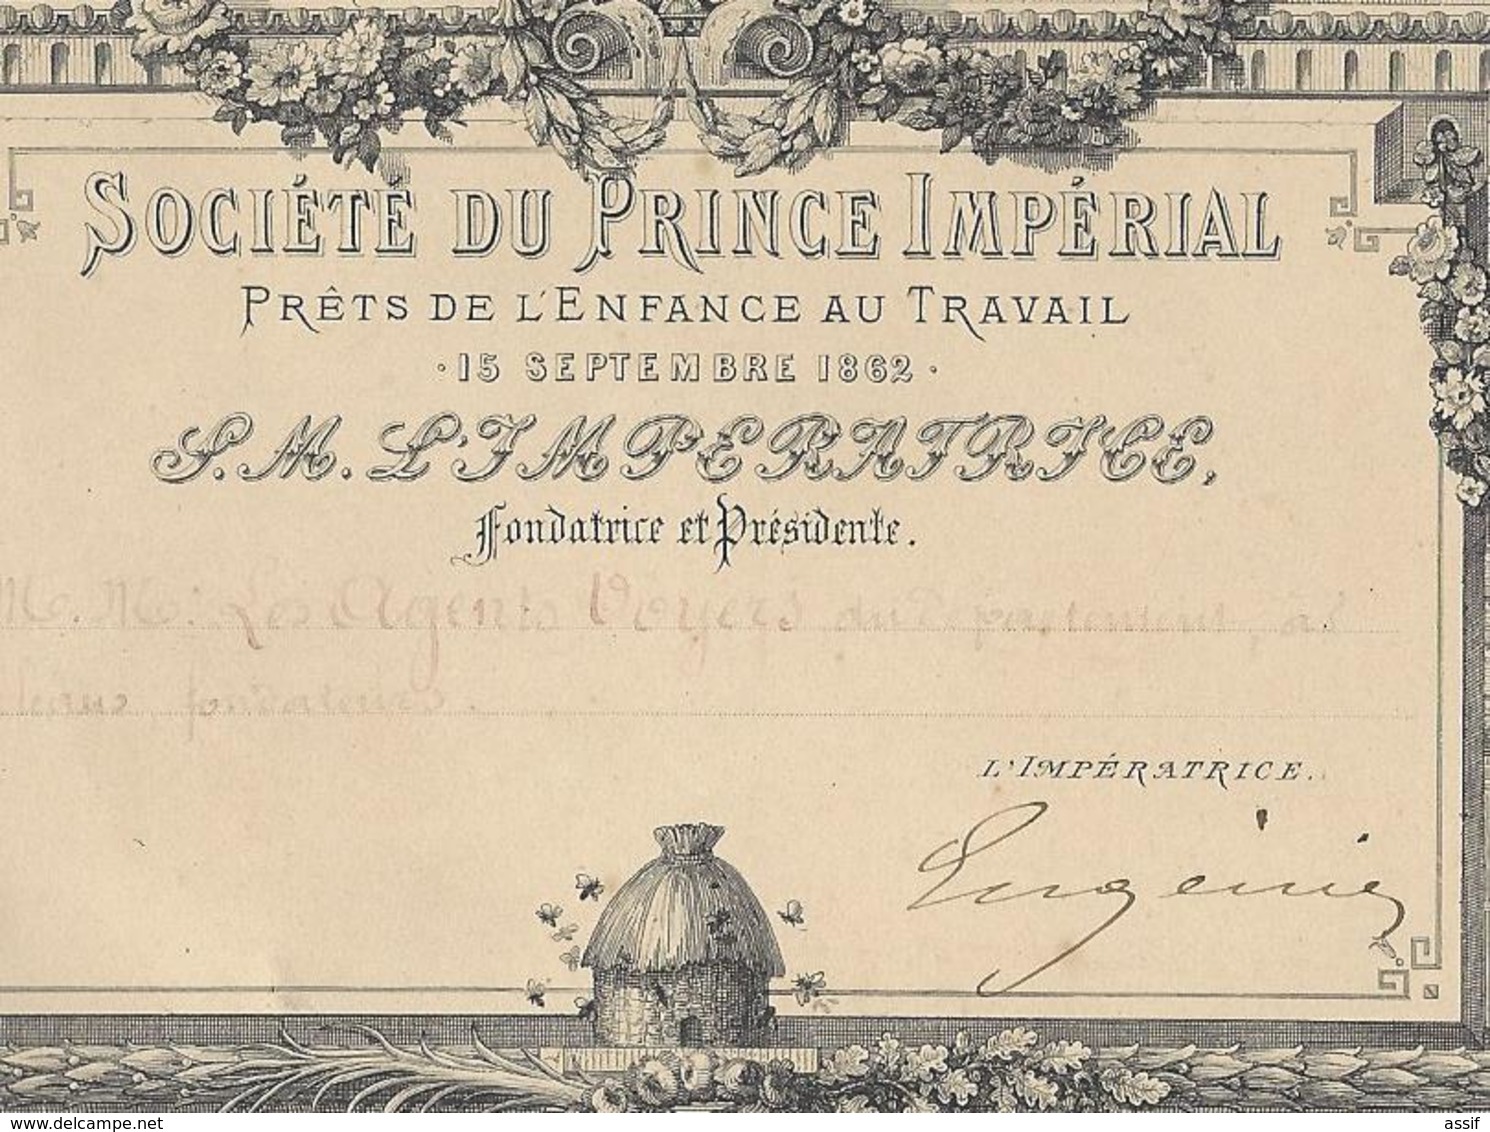 SOCIÉTÉ DU PRINCE IMPÉRIAL
PRÊTS DE L'ENFANCE AU TRAVAIL
· 15 SEPTEMBRE 1862 ·
S. M. L'IMPERATRICE,
Fondatrice et Présidente.
M. M. Les Agents Voyers du Département,
fondateurs.
L'IMPÉRATRICE.
Eugénie
www.delcampe.net
assif